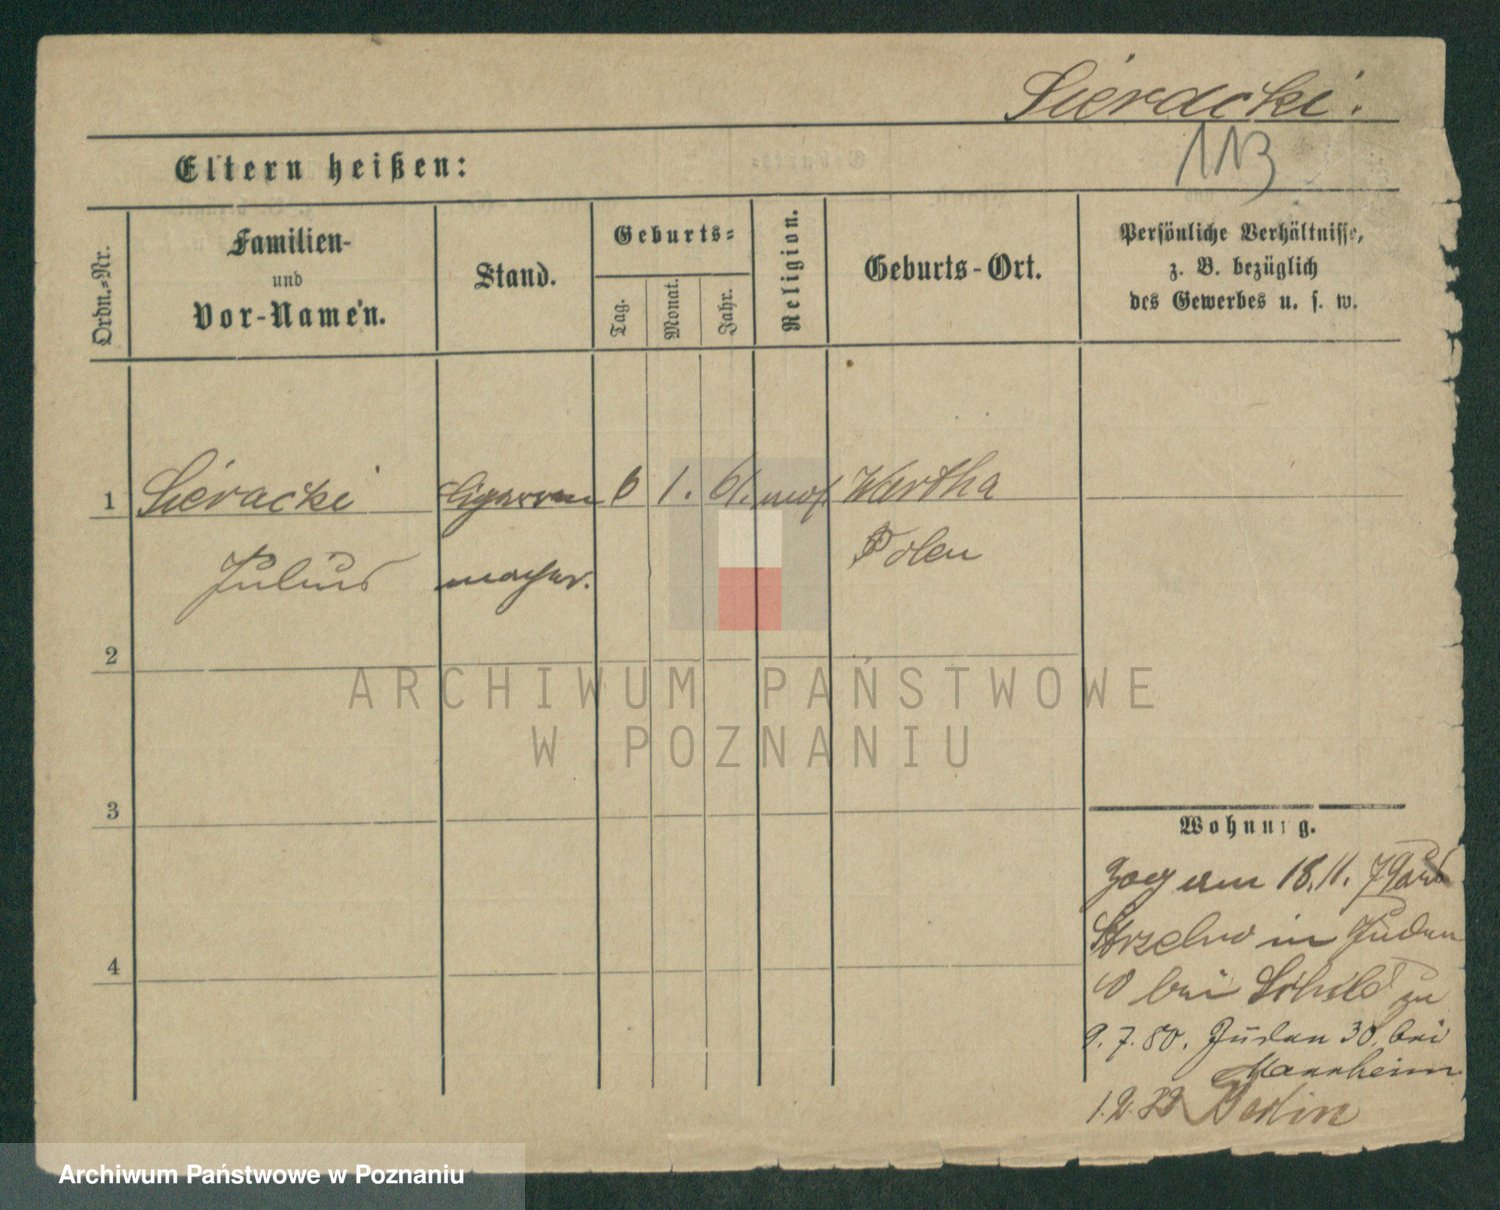 Sieracki.
113
Eltern heißen:
Ordn.-Nr.
Familien-
und
Vor-Namen.
Stand.
Geburts-
Tag.
Monat.
Jahr.
Religion.
Geburts-Ort.
Persönliche Verhältnisse,
z. B. bezüglich
des Gewerbes u. s. w.
1 Sieracki Cigarren 6 1. 61. mos. Wartha
Julius macher. Polen
2
3
4
Wohnung.
Zog am 18.11.79 aus
Strzelno in Juden
10 bei Schild zu
9.7.80. Juden 30. bei
Mannheim
1.2.82 Berlin
ARCHIWUM PAŃSTWOWE
W POZNANIU
Archiwum Państwowe w Poznaniu